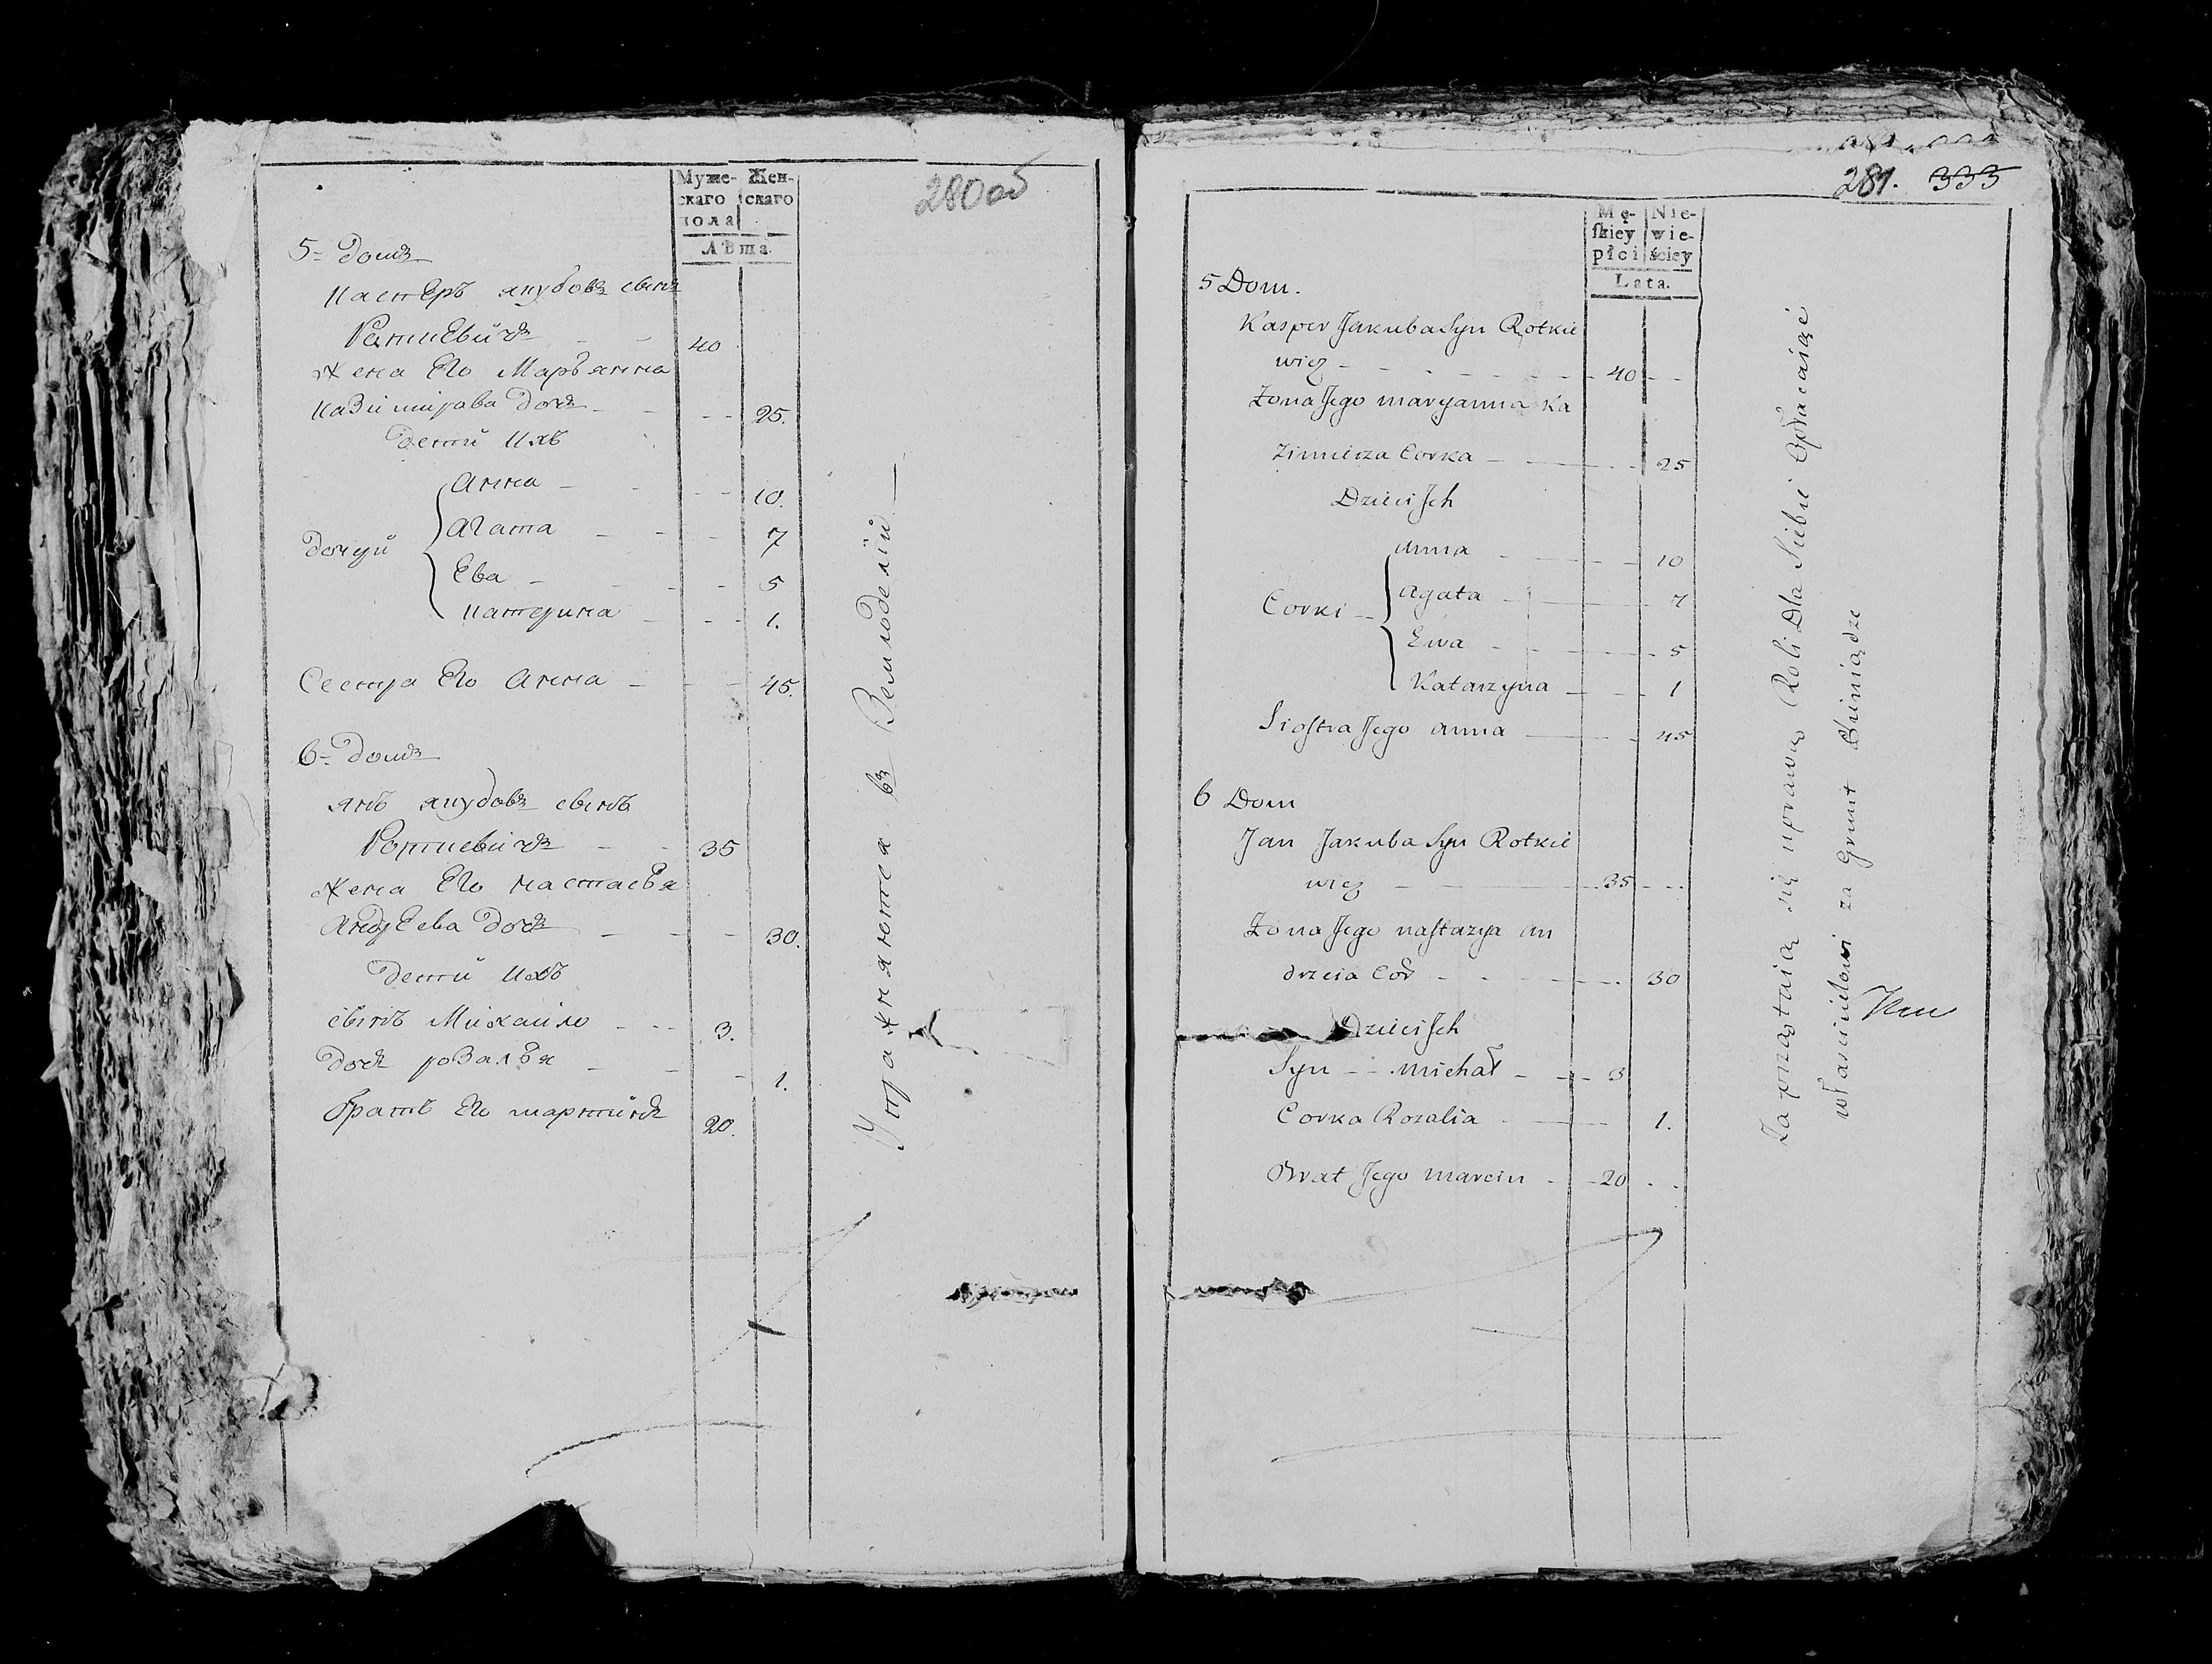 280об
Муже- Жен-
скаго скаго
пола
Лѣта.
5 = домъ
Касперъ якубовъ сынъ
Роткевичъ - - 40
жена Его Марьянна
казимирава дочь - - 25.
дети ихъ
Анна - - 10.
Агата - - 7
дочери
Ева - - 5
катерина - - 1.
Сестра Его Анна - - 45.
6 = домъ
янъ якубовъ сынъ
Роткевичъ - - 35
жена Его настасья
Андреева дочь - - 30.
дети ихъ
сынъ Михайло - - 3.
дочь розалья - - 1.
братъ Его мартинъ 20.
Упражняютса въ Земледелiи
281. 333
Mę- Nie-
ſkiey wie-
płci ściey
Lata.
5 Dom.
Kasper Jakuba Syn Rotkie
wicz - - 40 - -
Żona Jego maryanna Ka
zimierza Corka - - 25
Dzieci Jch
anna - - 10
agata - - 7
Corki - -
Ewa - - 5
Katarzyna - - 1
Sioſtra Jego anna - - 45
6 Dom
Jan Jakuba Syn Rotkie
wicz - - 35 - -
Żona Jego naſtazya an
drzeia Cor - - 30
Dzieci Jch
Syn - - michał - - 3
Corka Rozalia - - 1.
Brat Jego marcin - 20 - -
Zaprzątaią się uprawą Roli Dla Siebie Opłacaiąć
właścicielowi za Grunt Pieniądze